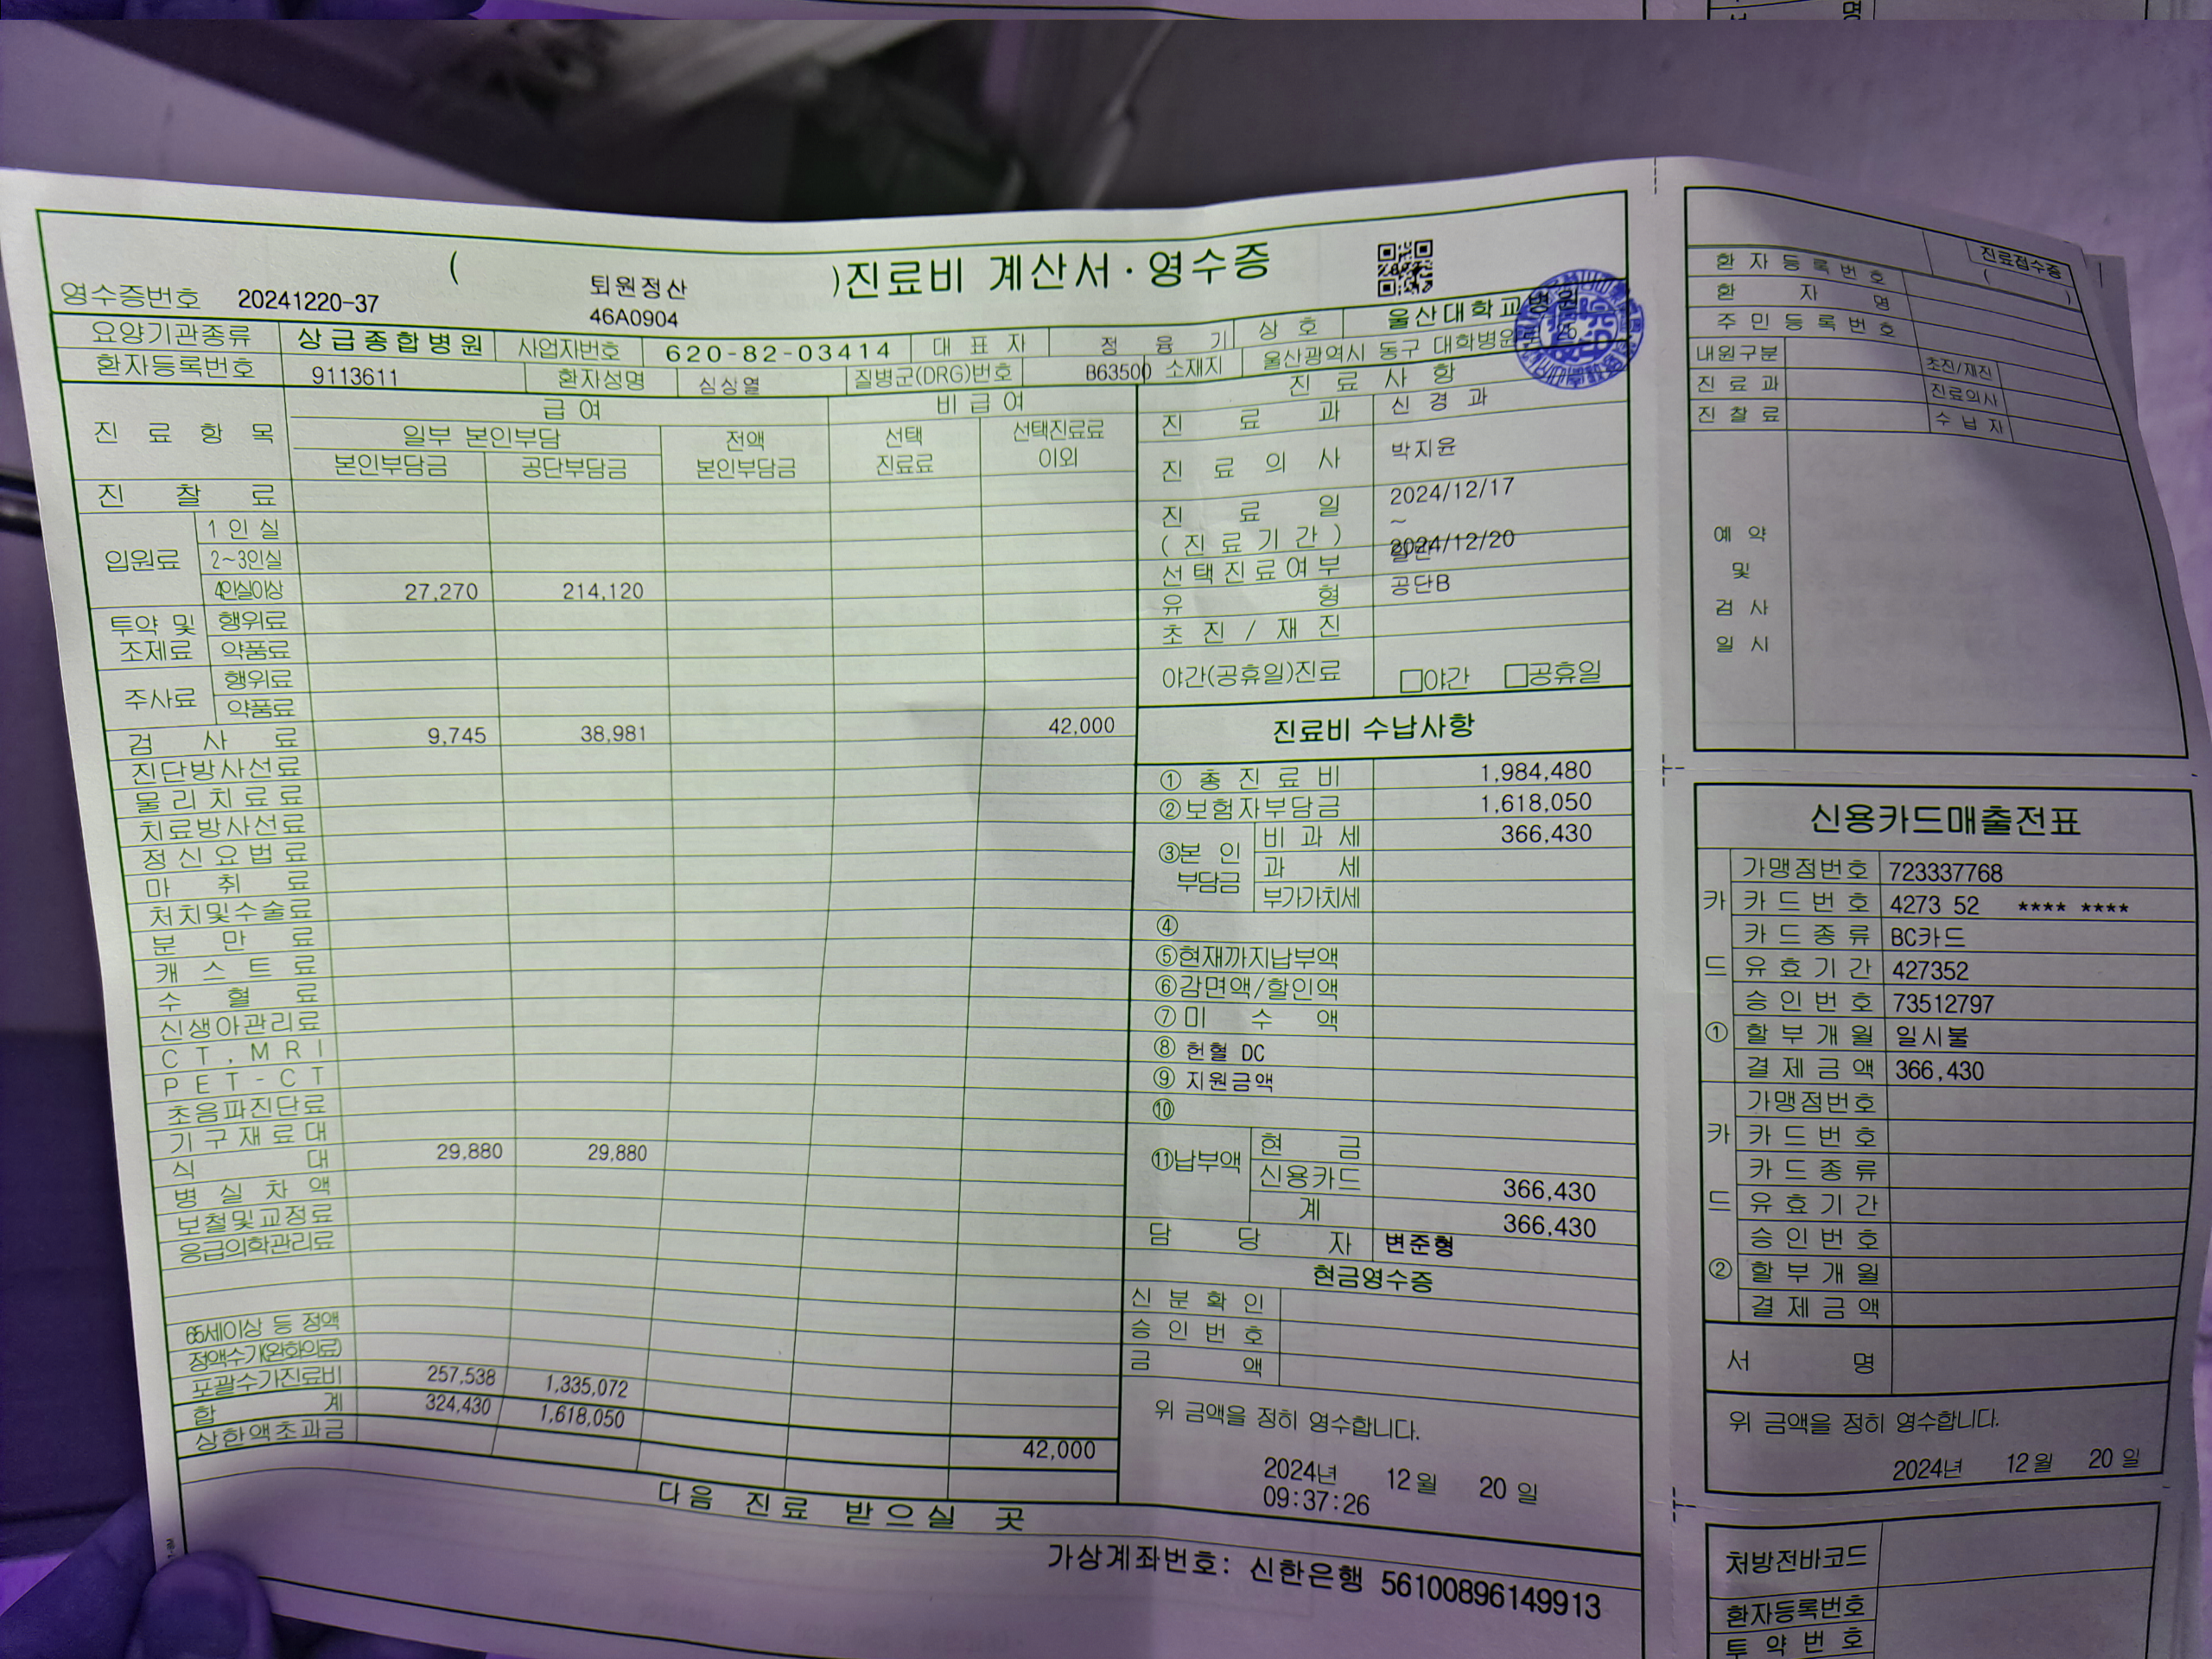 명
(퇴원정산)진료비 계산서·영수증
46A0904
영수증번호 20241220-37
요양기관종류 상급종합병원 사업자번호 620-82-03414 대표자 정융기 상호 울산대학교병원
환자등록번호 9113611 환자성명 심상열 질병군(DRG)번호 B63500 소재지 울산광역시 동구 대학병원로
진료항목 급여 비급여 진료사항
일부 본인부담 전액 본인부담금 선택 진료료 선택진료료 이외
본인부담금 공단부담금
진료과 신경과
진료의사 박지윤
진료일 (진료기간) 2024/12/17 ~ 2024/12/20
선택진료여부 일반
유형 공단B
초진/재진
야간(공휴일)진료 □야간 □공휴일
진찰료
입원료 1인실
2~3인실
4인실이상 27,270 214,120
투약 및 조제료 행위료
약품료
주사료 행위료
약품료
검사료 9,745 38,981 42,000
진단방사선료
물리치료료
치료방사선료
정신요법료
마취료
처치및수술료
분만료
캐스트료
수혈료
신생아관리료
CT, MRI
PET-CT
초음파진단료
기구재료대
식대 29,880 29,880
병실차액
보철및교정료
응급의학관리료
65세이상 등 정액
정액수가(완화의료)
포괄수가진료비 257,538 1,335,072
합계 324,430 1,618,050 42,000
상한액초과금
진료비 수납사항
① 총진료비 1,984,480
②보험자부담금 1,618,050
③본인부담금 비과세 366,430
과세
부가가치세
④
⑤현재까지납부액
⑥감면액/할인액
⑦미수액
⑧ 헌혈 DC
⑨ 지원금액
⑩
⑪납부액 현금
신용카드 366,430
계 366,430
담당자 변준형
현금영수증
신분확인
승인번호
금액
위 금액을 정히 영수합니다.
2024년 12월 20일
09:37:26
다음 진료 받으실 곳
가상계좌번호: 신한은행 56100896149913
진료접수증
( )
환자등록번호
환자명
주민등록번호
내원구분 초진/재진
진료과 진료의사
진찰료 수납자
예약 및 검사 일시
신용카드매출전표
카드① 가맹점번호 723337768
카드번호 4273 52 **** ****
카드종류 BC카드
유효기간 427352
승인번호 73512797
할부개월 일시불
결제금액 366,430
카드② 가맹점번호
카드번호
카드종류
유효기간
승인번호
할부개월
결제금액
서명
위 금액을 정히 영수합니다.
2024년 12월 20일
처방전바코드
환자등록번호
투약번호